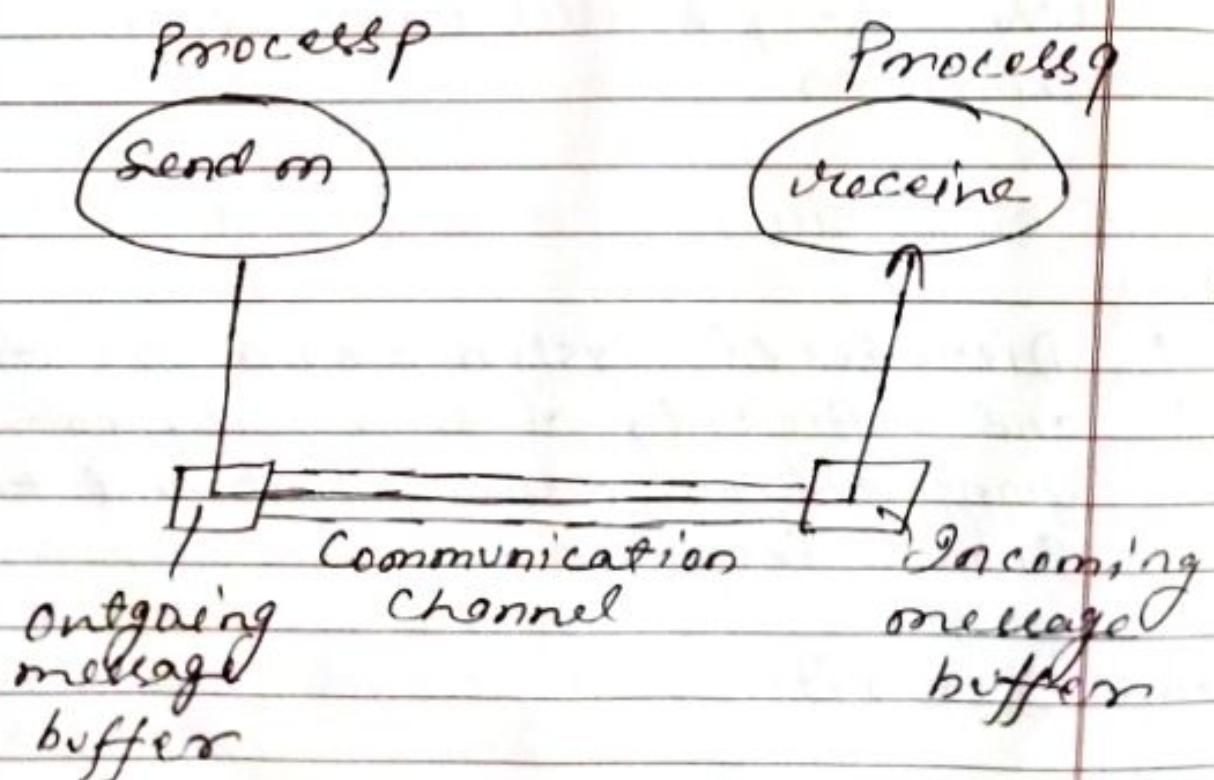 Process p
Process q
Send m
receive
Communication
Channel
Outgoing
message
buffer
Incoming
message
buffer